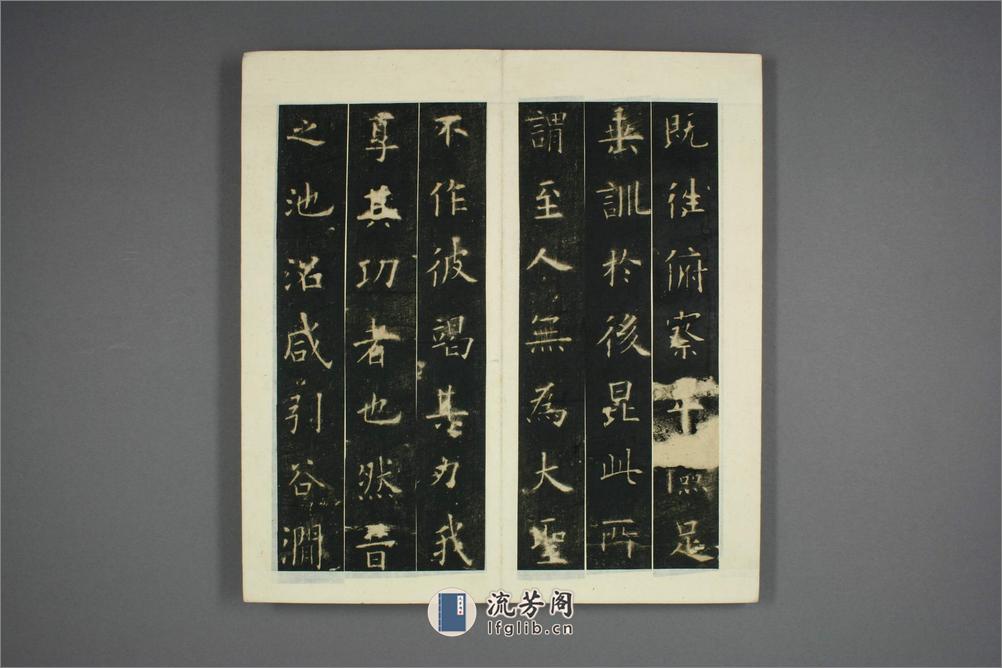 既往俯察卑儉足
垂訓於後昆此所
謂至人無為大聖
不作彼竭其力我
享其功者也然昔
之池沼咸引谷澗
流芳阁
lfglib.cn